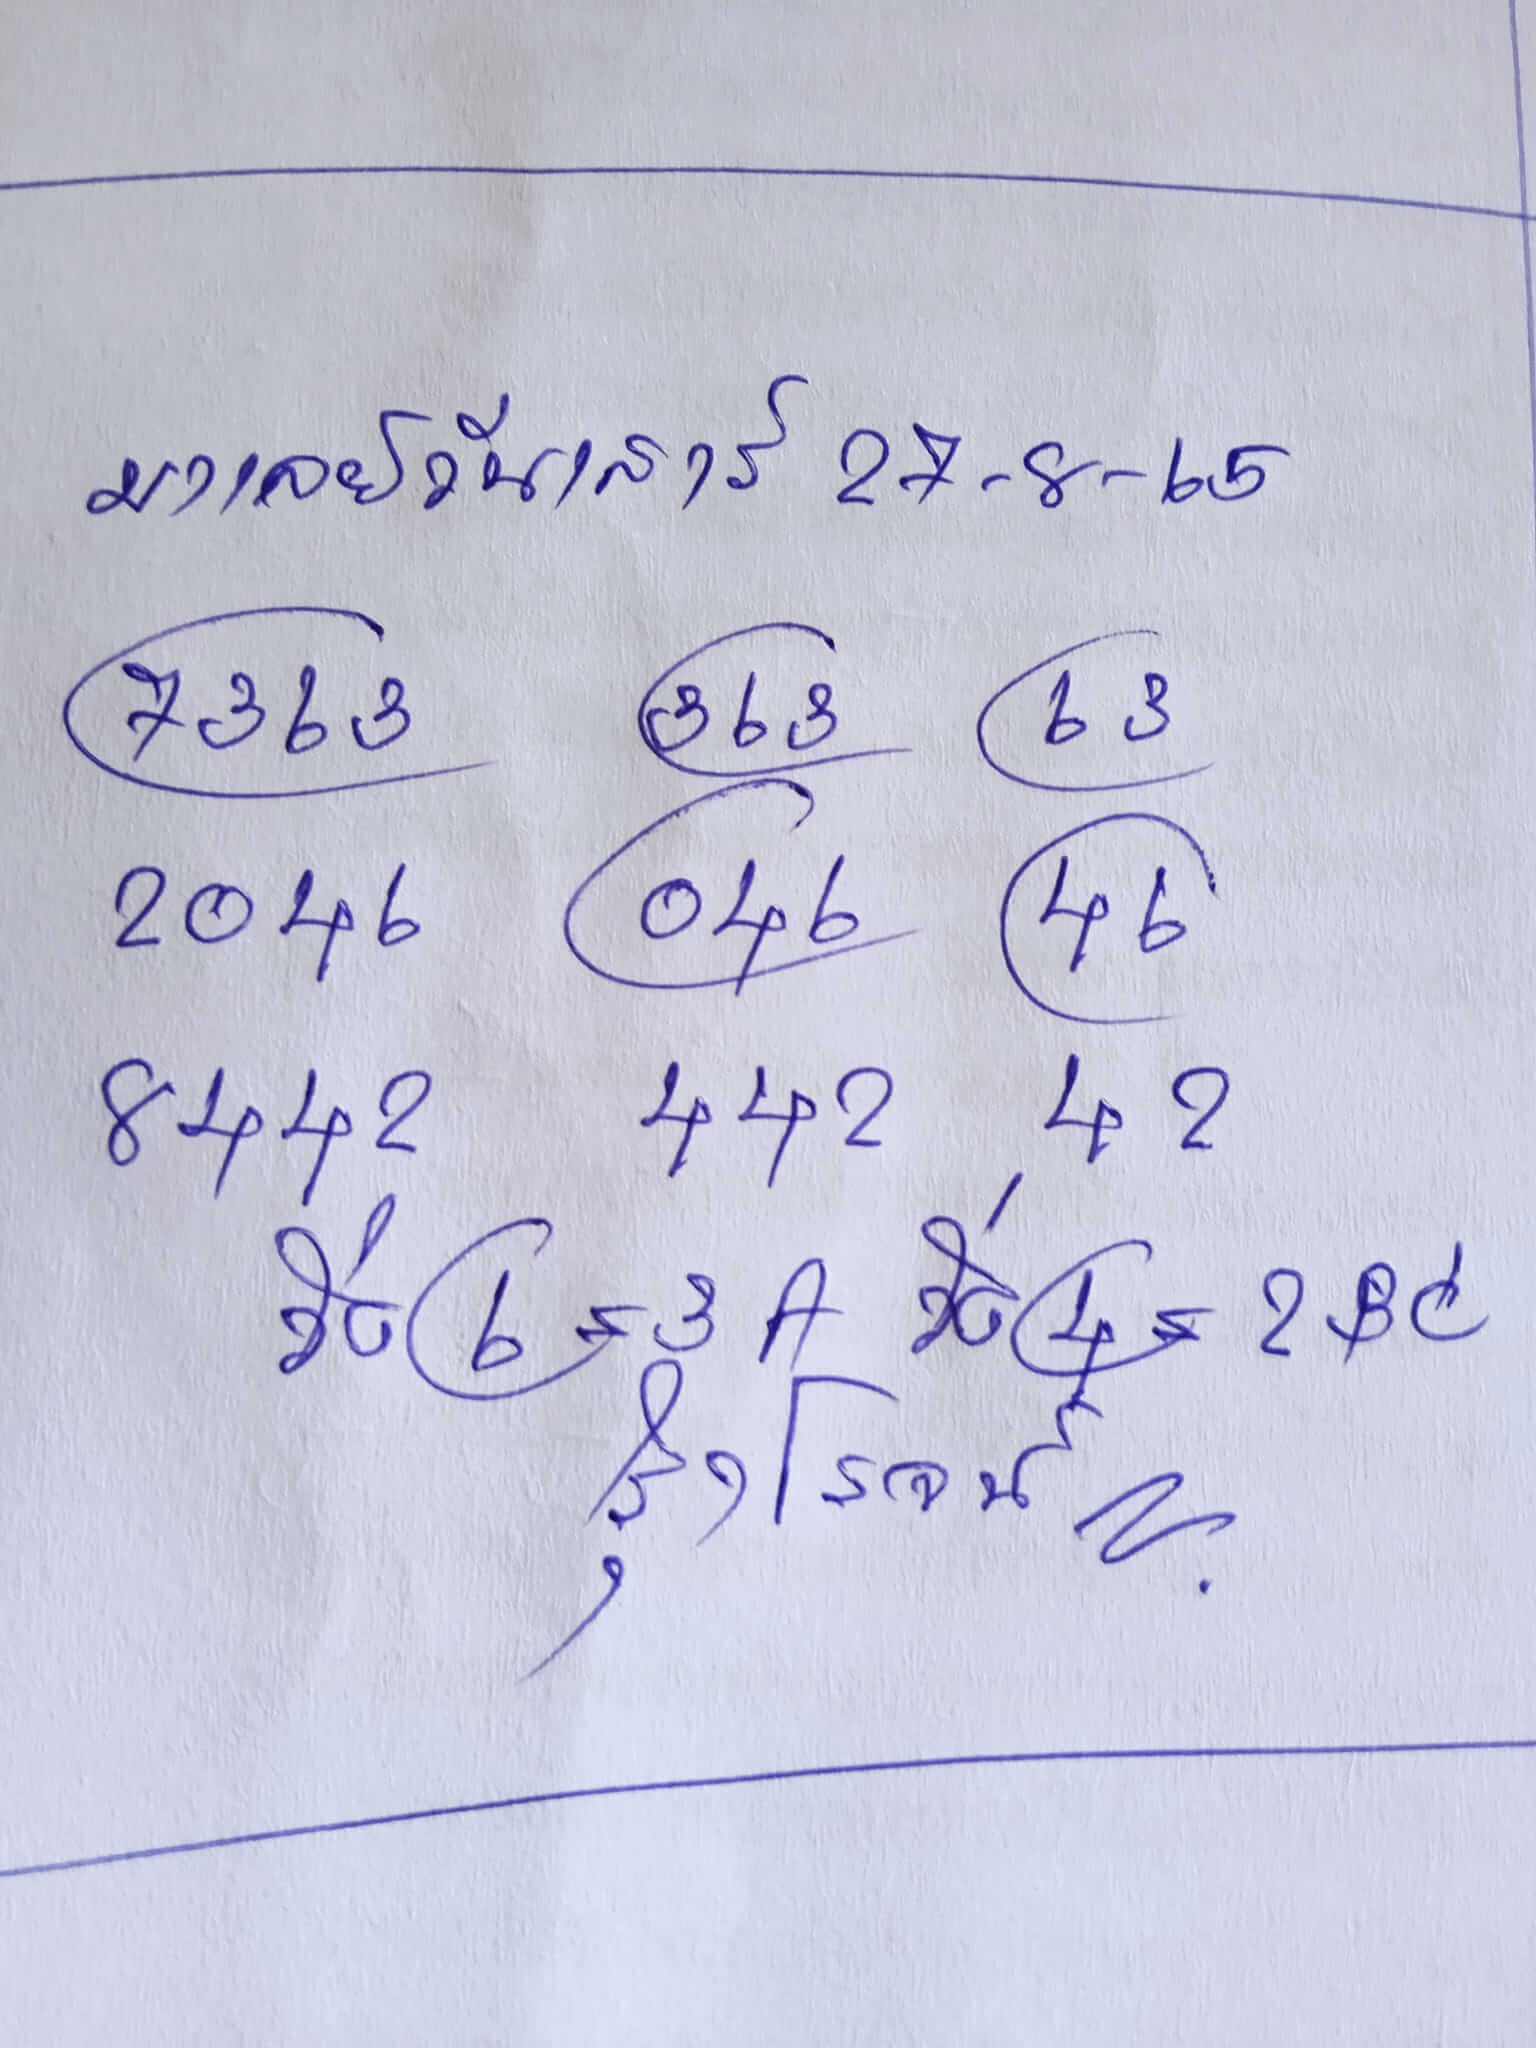 มาเลย์วันเสาร์ 27-8-65
7363 363 63
2046 046 46
8442 442 42
6=3 A 4=2 BC